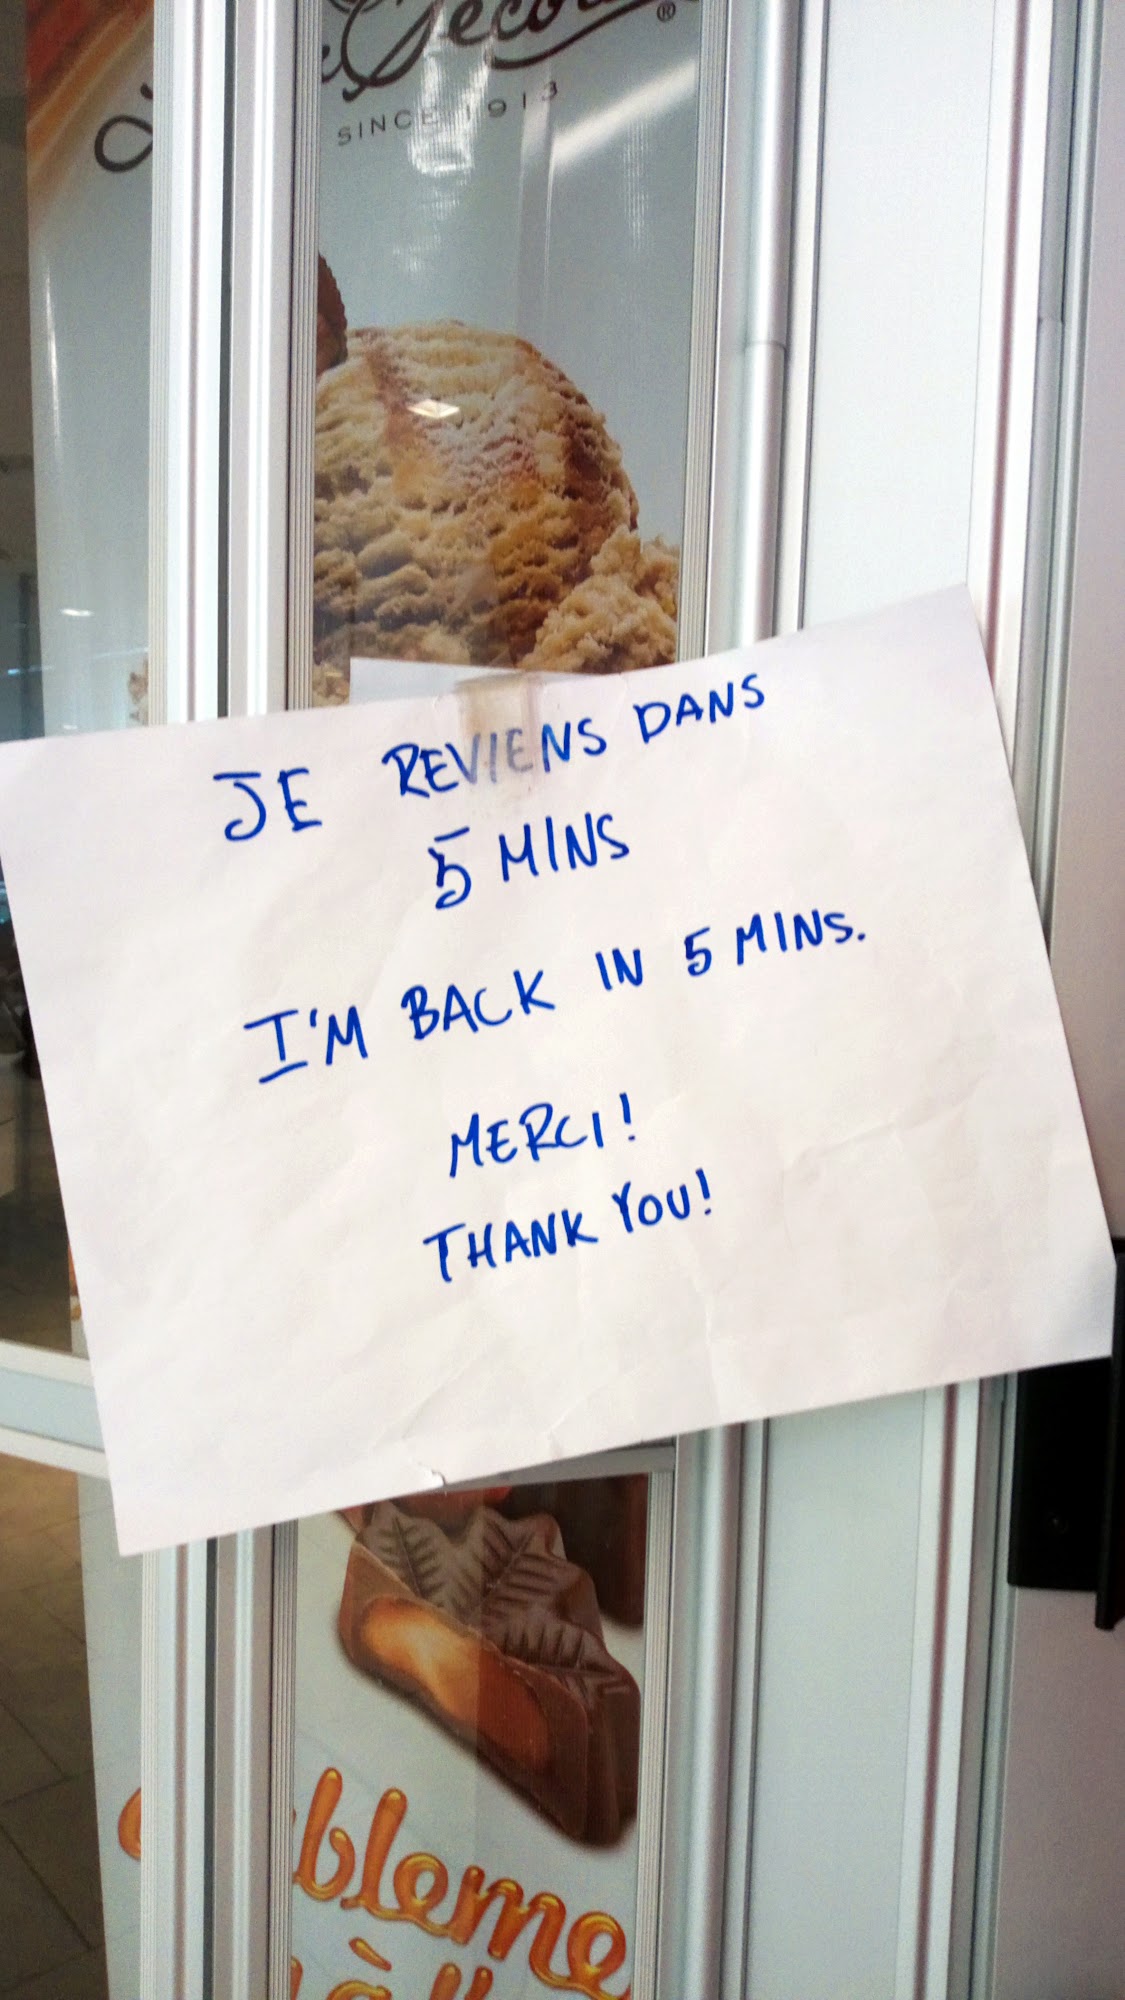 SINCE 1913
JE REVIENS DANS
5 MINS
I'M BACK IN 5 MINS.
MERCI!
THANK YOU!